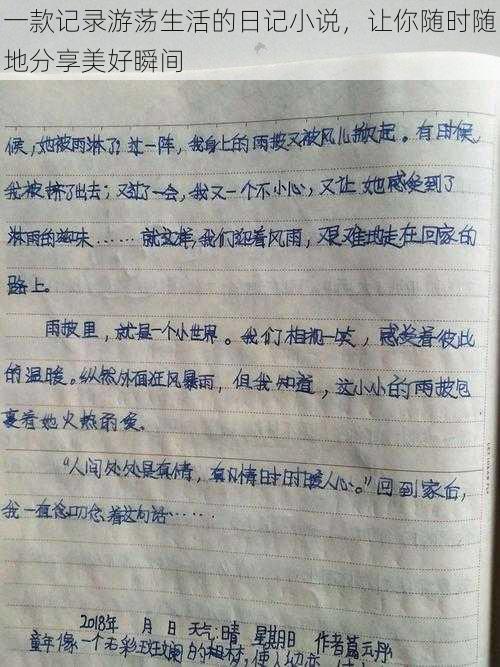 一款记录游荡生活的日记小说，让你随时随
地分享美好瞬间
候，她被雨淋了？过一阵，我身上的雨披又被风儿掀起。有时候，
我被挤了出去；又过了一会，我又一个不小心，又让她感受到了
淋雨的滋味……就这样，我们迎着风雨，艰难地走在回家的
路上。
雨披里，就是一个小世界。我们相视一笑，感受着彼此
的温暖。纵然外面狂风暴雨，但我知道，这小小的雨披包
裹着她火热的爱。
“人间处处是真情，真情时时暖人心。”回到家后，
我一直念叨着这句话……
2018年 月 日 天气:晴 星期日 作者
童年像一个五彩斑斓的相框，使人幻